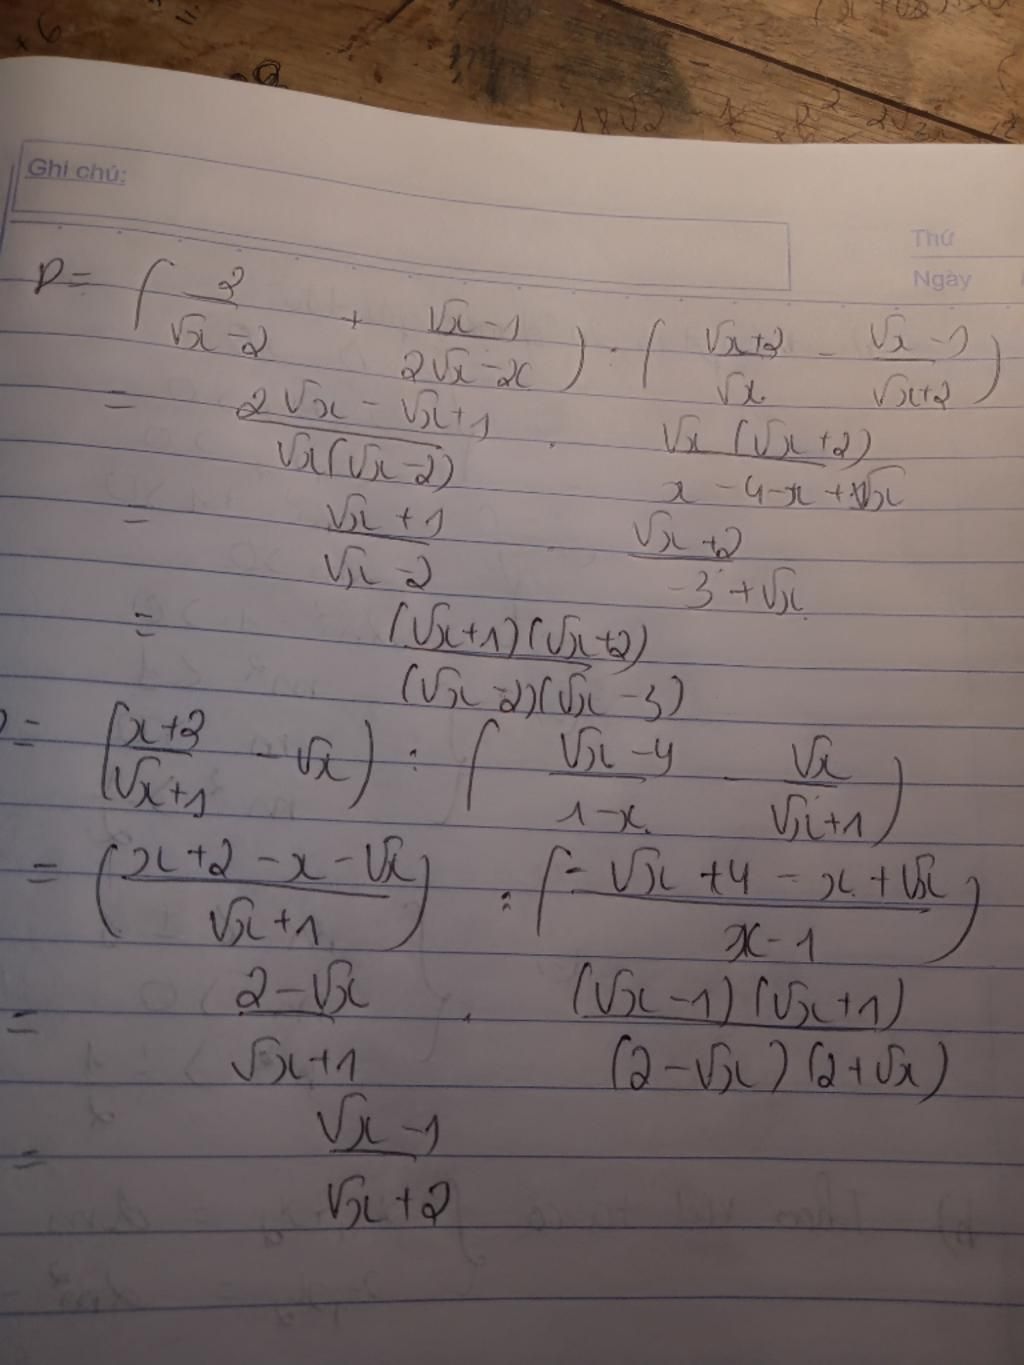 Ghi chú:
Thứ
Ngày
P = ( 2/(√x - 2) + (√x - 1)/(2√x - x) ) : ( (√x+2)/√x - (√x - 1)/(√x+2) )
= (2√x - √x + 1)/(√x(√x - 2)) . (√x(√x + 2))/(x - 4 - x + √x)
= (√x + 1)/(√x - 2) . (√x + 2)/(-3 + √x)
= ((√x+1)(√x+2))/((√x - 2)(√x - 3))
= ( (x+2)/(√x+1) - √x ) : ( (√x - 4)/(1 - x) - √x/(√x+1) )
= ( (x + 2 - x - √x)/(√x + 1) ) : ( (-√x + 4 - x + √x)/(x - 1) )
= (2 - √x)/(√x + 1) . ((√x - 1)(√x + 1))/((2 - √x)(2 + √x))
= (√x - 1)/(√x + 2)